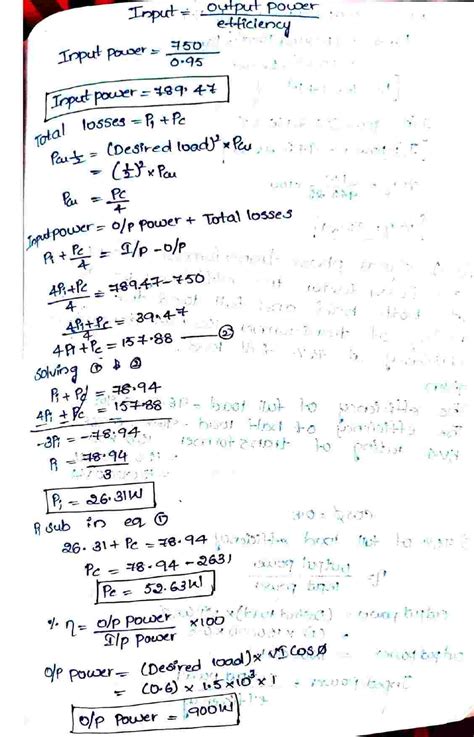 Input = output power / efficiency
Input power = 750 / 0.95
Input power = 789.47
Total losses = Pi + Pc
Pcu 1/2 = (Desired load)² × Pcu
= (1/2)² × Pcu
Pcu = Pc / 4
Input power = O/P power + Total losses
Pi + Pc/4 = I/p - O/p
4Pi+Pc / 4 = 789.47-750
4Pi+Pc / 4 = 39.47
4Pi + Pc = 157.88 — ②
solving ① & ②
Pi + Pc = 78.94
4Pi + Pc = 157.88
-3Pi = -78.94
Pi = 78.94 / 3
Pi = 26.31W
Pi sub in eq ①
26.31 + Pc = 78.94
Pc = 78.94 - 2631
Pc = 52.63W
% η = O/P power / I/p power ×100
O/P power = (Desired load) × VI cosø
= (0.6) × 1.5×10³ × 1
O/P Power = 900W